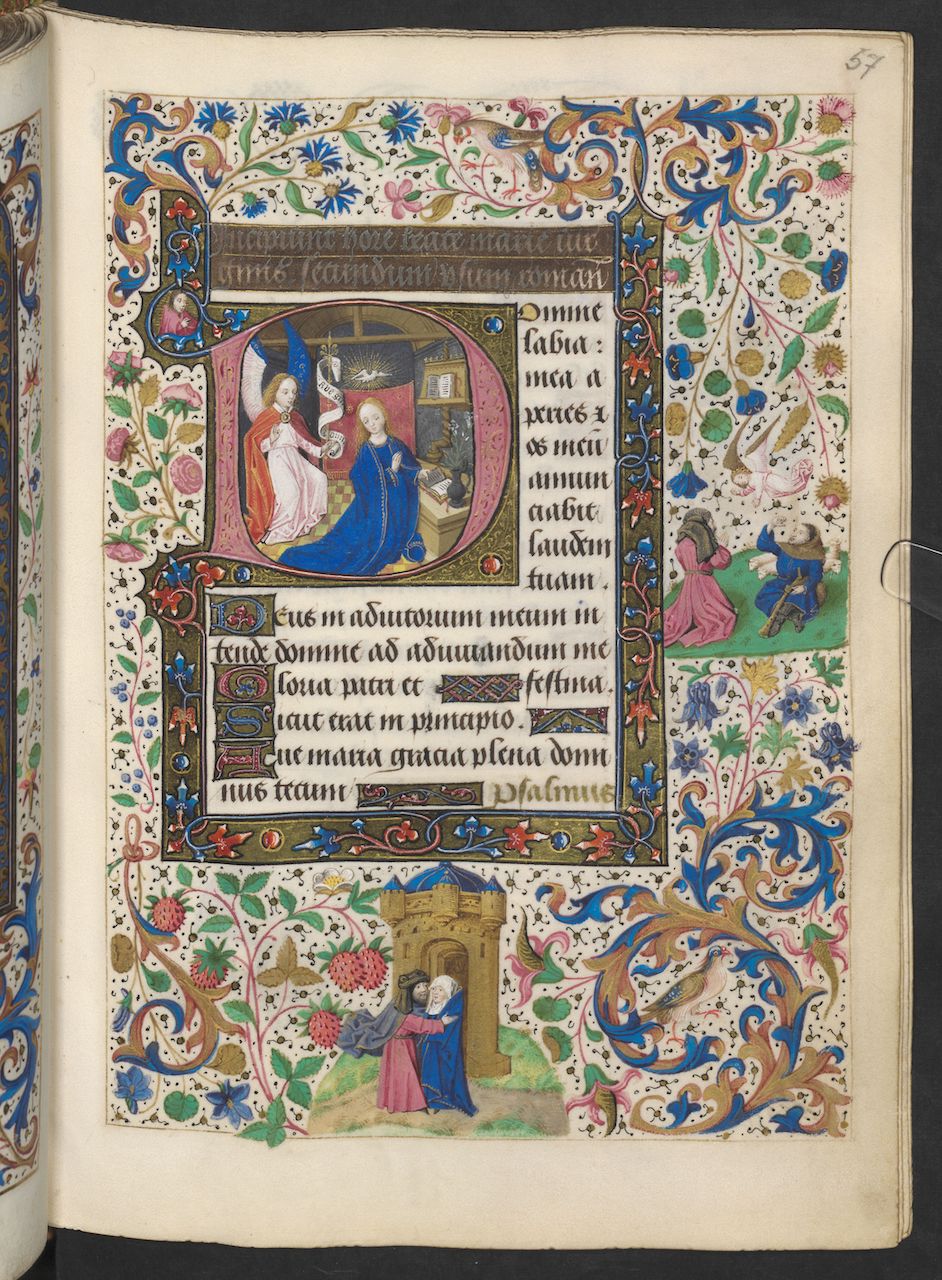 57
Incipiunt hore beate marie vir
ginis secundum vsum roman̄
Domine
labia:
mea a
peries ⁊
os meū
annun
ciabit
laudem
tuam.
Deus in adiutorium meum in
tende domine ad adiuuandum me
Gloria patri et festina.
Sicut erat in principio.
Aue maria gracia plena domi
nus tecum psalmus